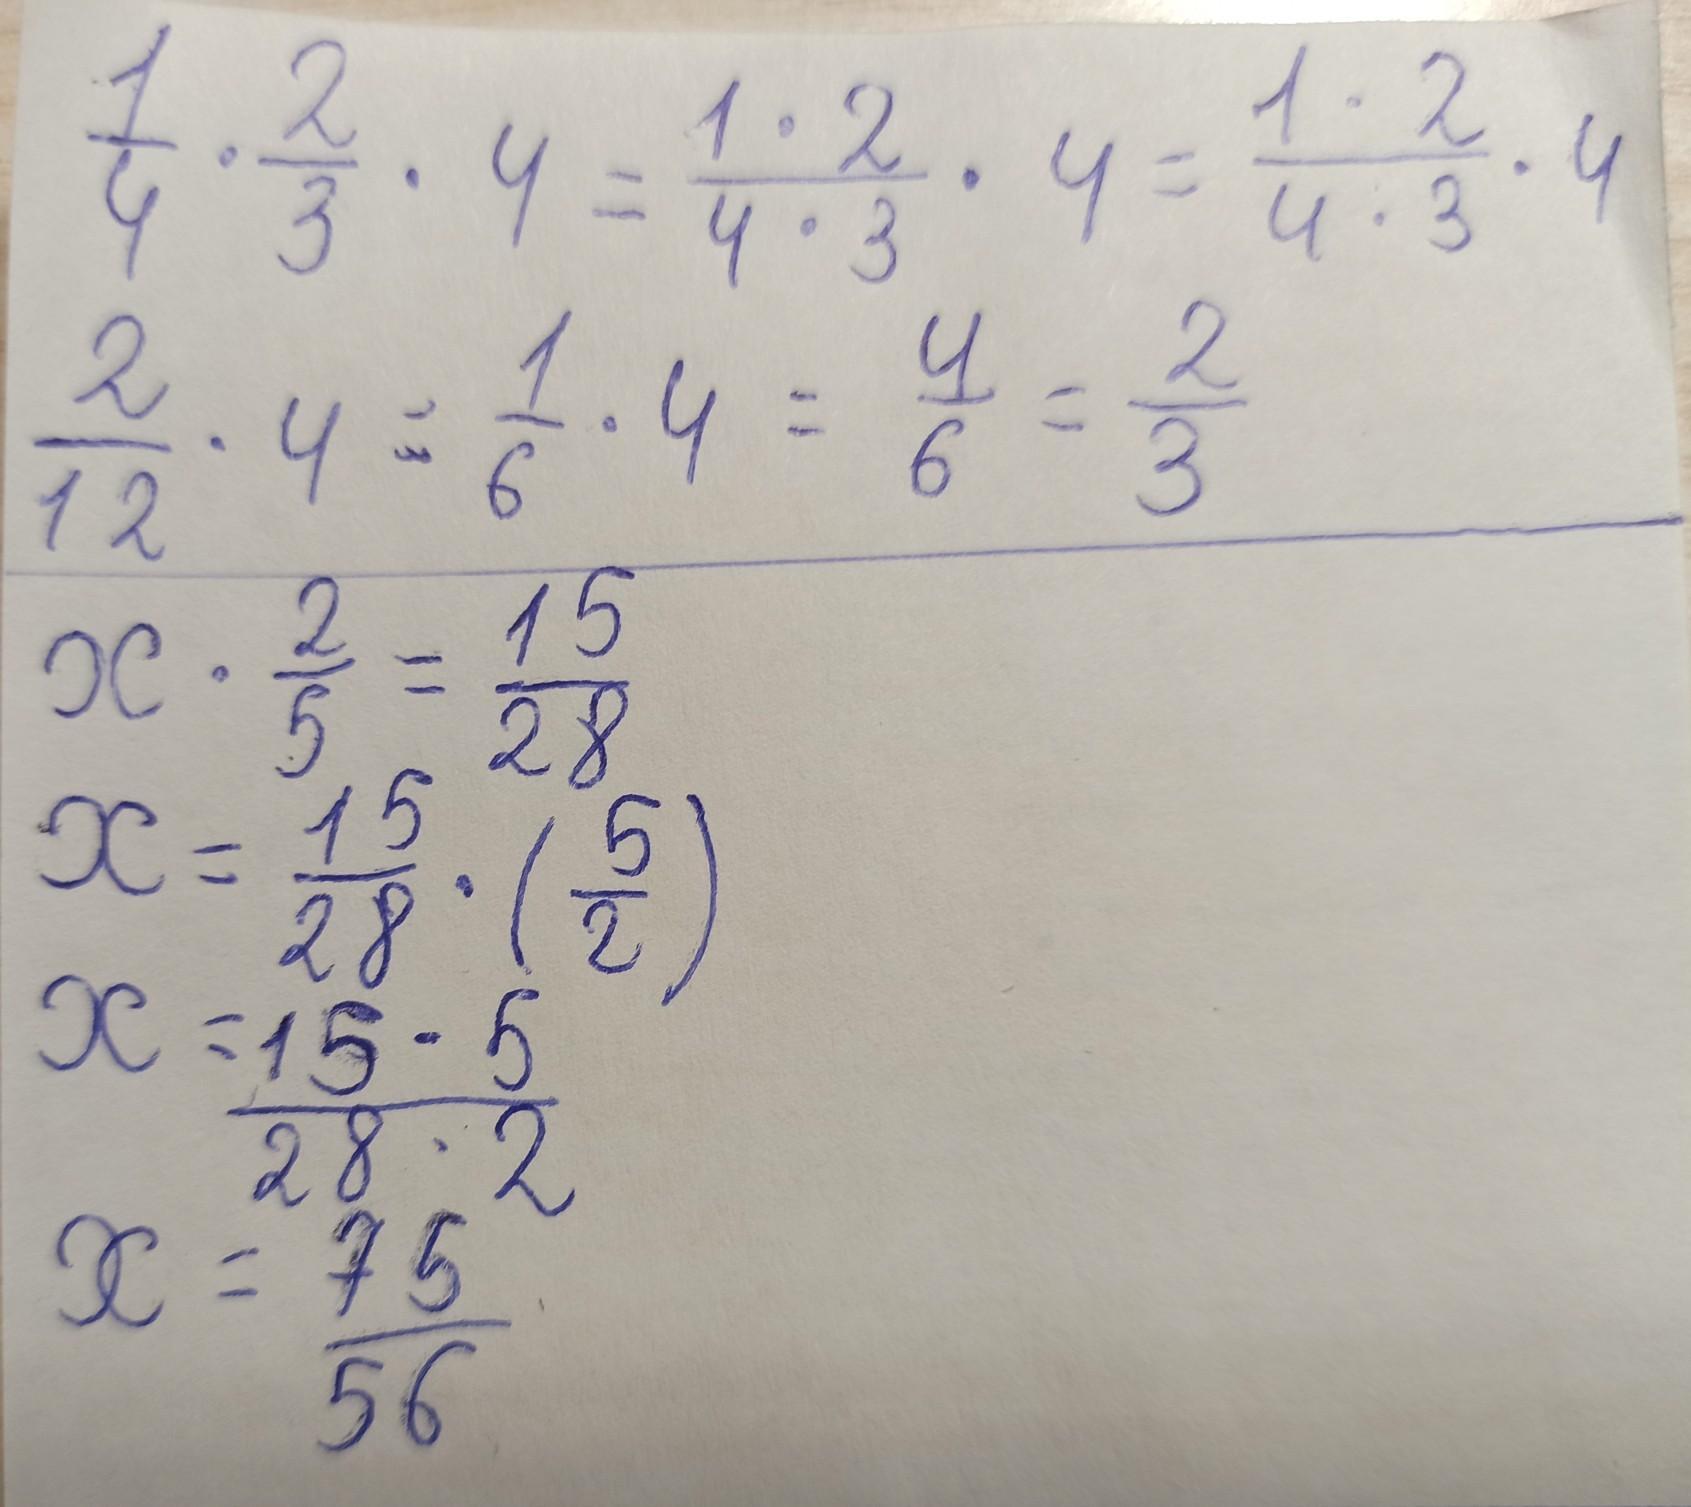 1/4 · 2/3 · 4 = (1 · 2)/(4 · 3) · 4 = (1 · 2)/(4 · 3) · 4
2/12 · 4 = 1/6 · 4 = 4/6 = 2/3
x · 2/5 = 15/28
x = 15/28 · (5/2)
x = (15 · 5)/(28 · 2)
x = 75/56